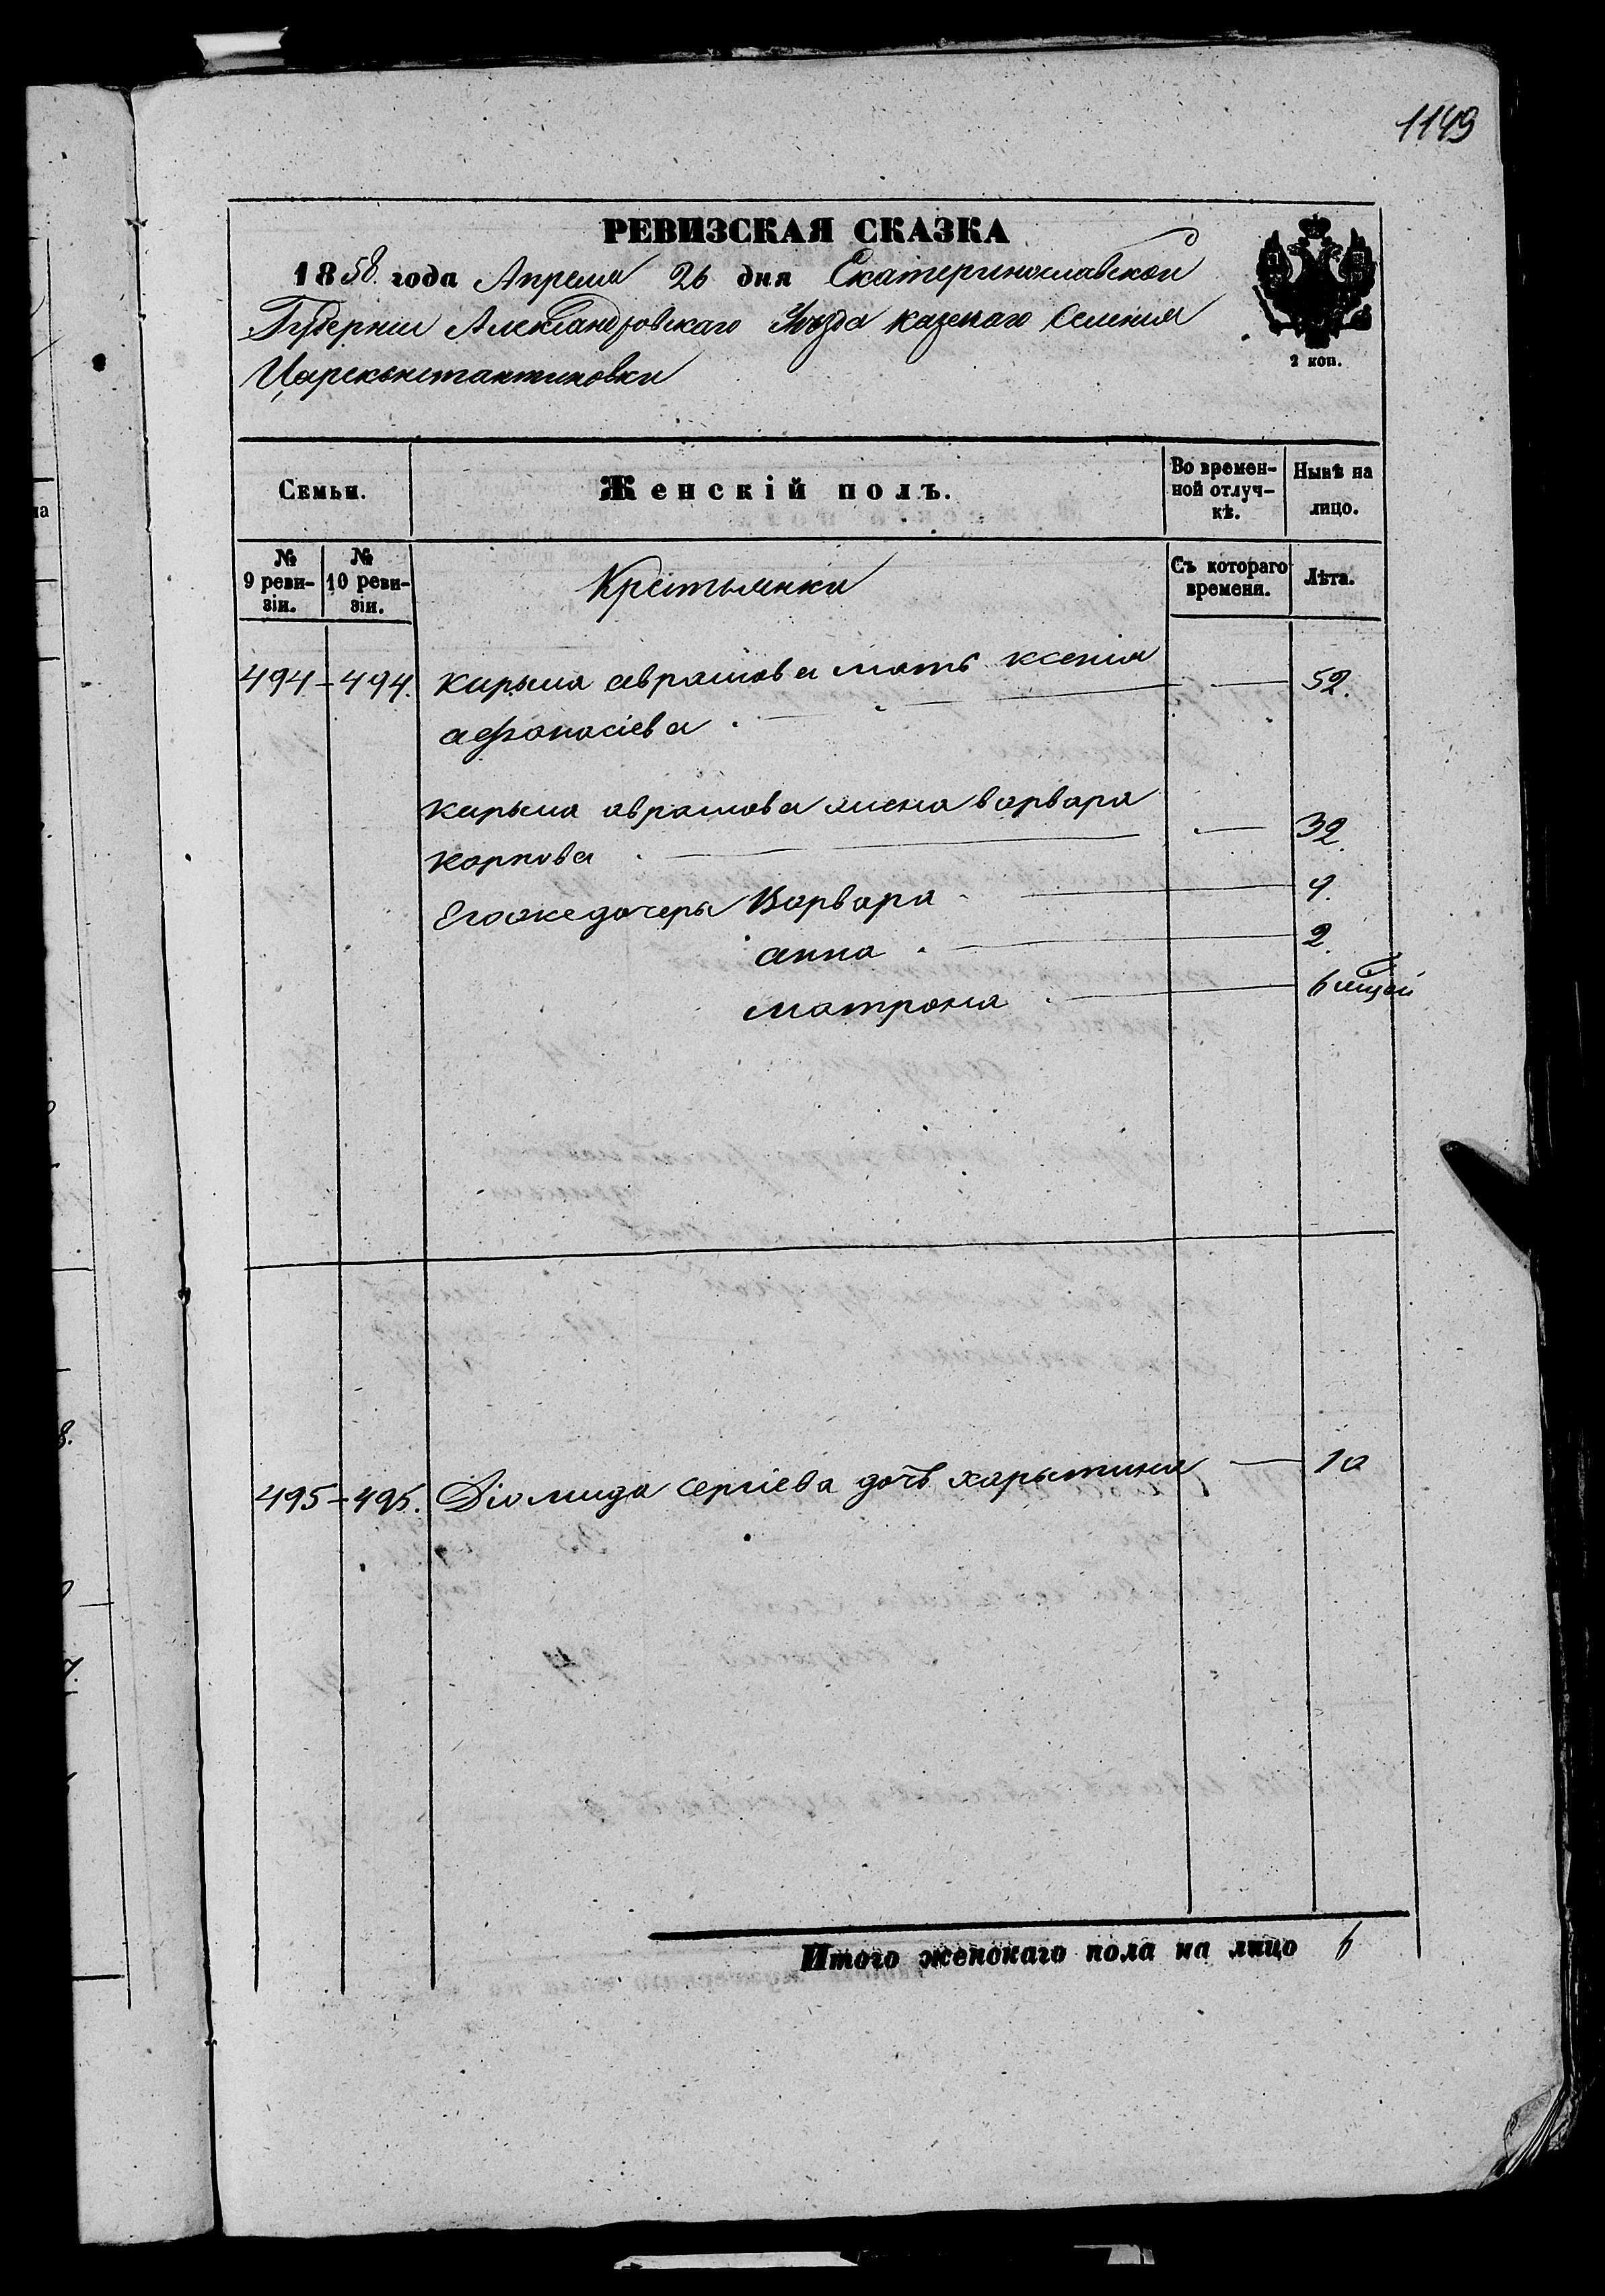 1149
РЕВИЗСКАЯ СКАЗКА
1858. года Апреля 26 дня Екатеринославской
Губерніи Александровскаго Уѣзда казенаго Селенія
Цареконстантиновки
2 коп.
Семьи.
Женскій полъ.
Во времен-
ной отлуч-
кѣ.
Нынѣ на
лицо.
№
9 реви-
зіи.
№
10 реви-
зіи.
Крестьянки
Съ котораго
времени.
Лѣта.
494 - 494. кирыла аврамова мать ксенія 52.
афонасіева
кирыла аврамова жена варвара
корпова 32.
Егоже дочеры Варвара 9.
анна 2.
матрона 6 мцей
495 - 495. Діомида сергіева дочь харытина 10
Итого женскаго пола на лицо 6